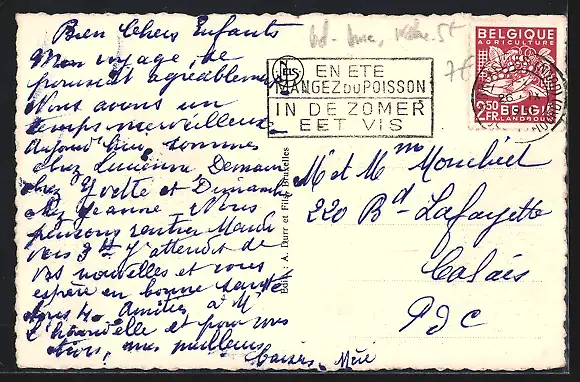 Bien Chers Enfants
Mon voyage, se
poursuit agréablement
Nous avons un
temps merveilleux
aujourd'hui, sommes
chez Lucienne Demain
chez Yvette et Dimanche
chez Jeanne Nous
pensons rentrer Mardi
vers 3h J'attend de
vos nouvelles et vous
espère en bonne santé
tous 4. Amitiés à Mr
et pour vous
tous, mes meilleurs
baisers. Mère
Edit. A. Durr et Fils Bruxelles
EN ETE
MANGEZ DU POISSON
IN DE ZOMER
EET VIS
BELGIQUE
AGRICULTURE
2.50
FR.
BELGIE
LANDBOUW
M et Mme Mouchiet
220 Bd Lafayette
Calais
PDC